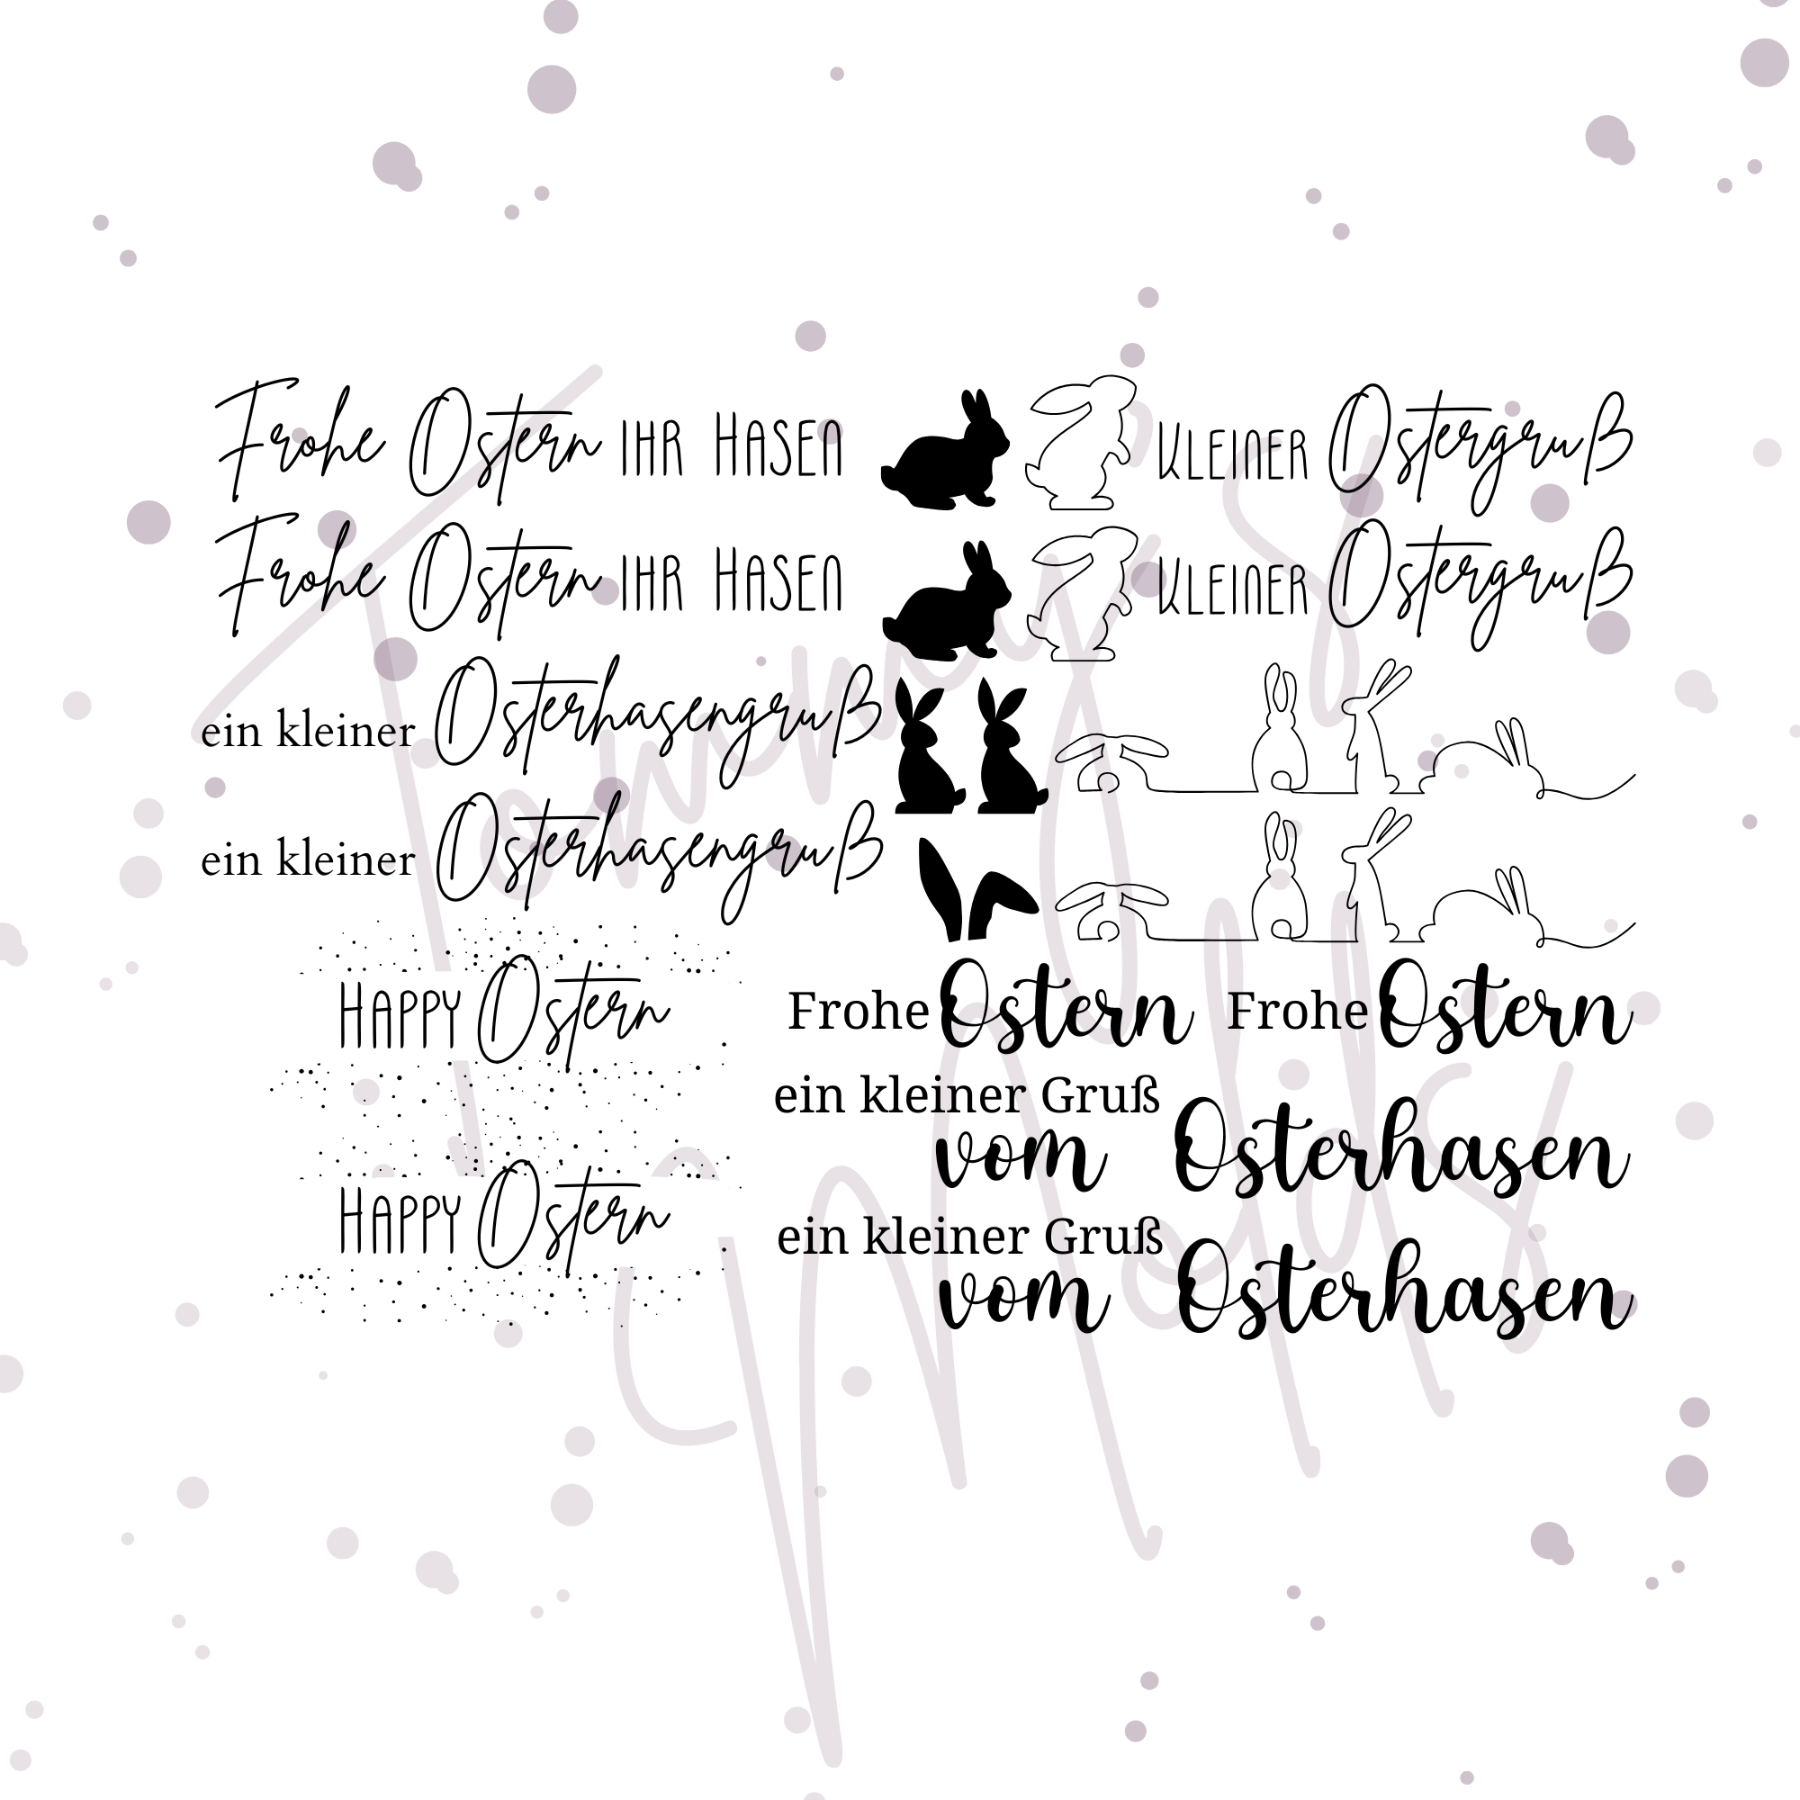 Frohe Ostern IHR HASEN
KLEINER Ostergruß
Frohe Ostern IHR HASEN
KLEINER Ostergruß
ein kleiner Osterhasengruß
ein kleiner Osterhasengruß
HAPPY Ostern
HAPPY Ostern
Frohe Ostern Frohe Ostern
ein kleiner Gruß
vom Osterhasen
ein kleiner Gruß
vom Osterhasen